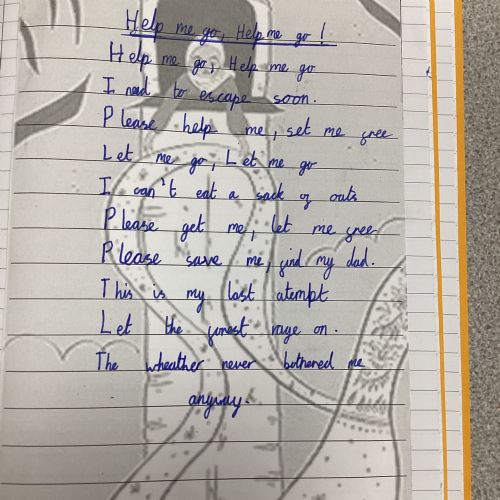 Help me go, Help me go!
Help me go, Help me go
I need to escape soon.
Please help me, set me free
Let me go, Let me go
I can't eat a sack of oats
Please get me, let me free
Please save me, find my dad.
This is my last atempt
Let the forest rage on.
The wheather never bothered me
anyway.